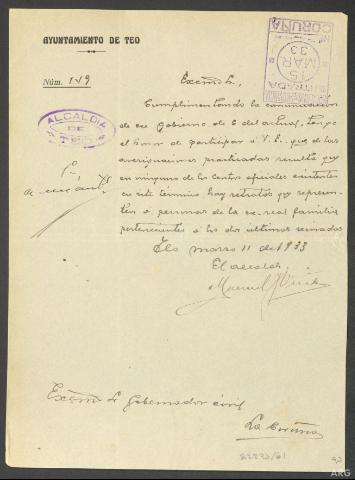 AYUNTAMIENTO DE TEO
Núm. 149
CORUÑA
15
MAR
33
ENTRADA
ALCALDIA
DE
TEO
Excmo Sr.
Cumplimentando la comunicación
de ese Gobierno de 6 del actual, tengo
el honor de participar a V. E. que de las
averiguaciones practicadas resulta que
en ninguno de los Centros oficiales existentes
en este término hay retratos que represen-
ten a personas de la ex-real familia
pertenecientes a los dos ultimos reinados
Teo marzo 11 de 1933
El alcalde,
Manuel
Excmo Sr Gobernador civil
La Coruña
ARG